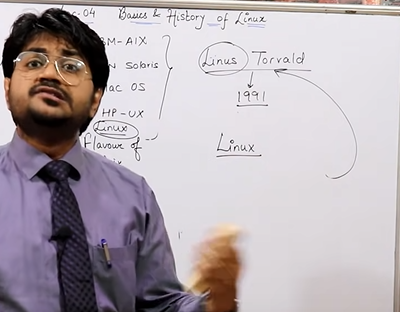 ec-04 Basics & History of Linux
BM-AIX
N Solaris
ac OS
HP-UX
Linux
Flavour of
Linus Torvald
1991
Linux